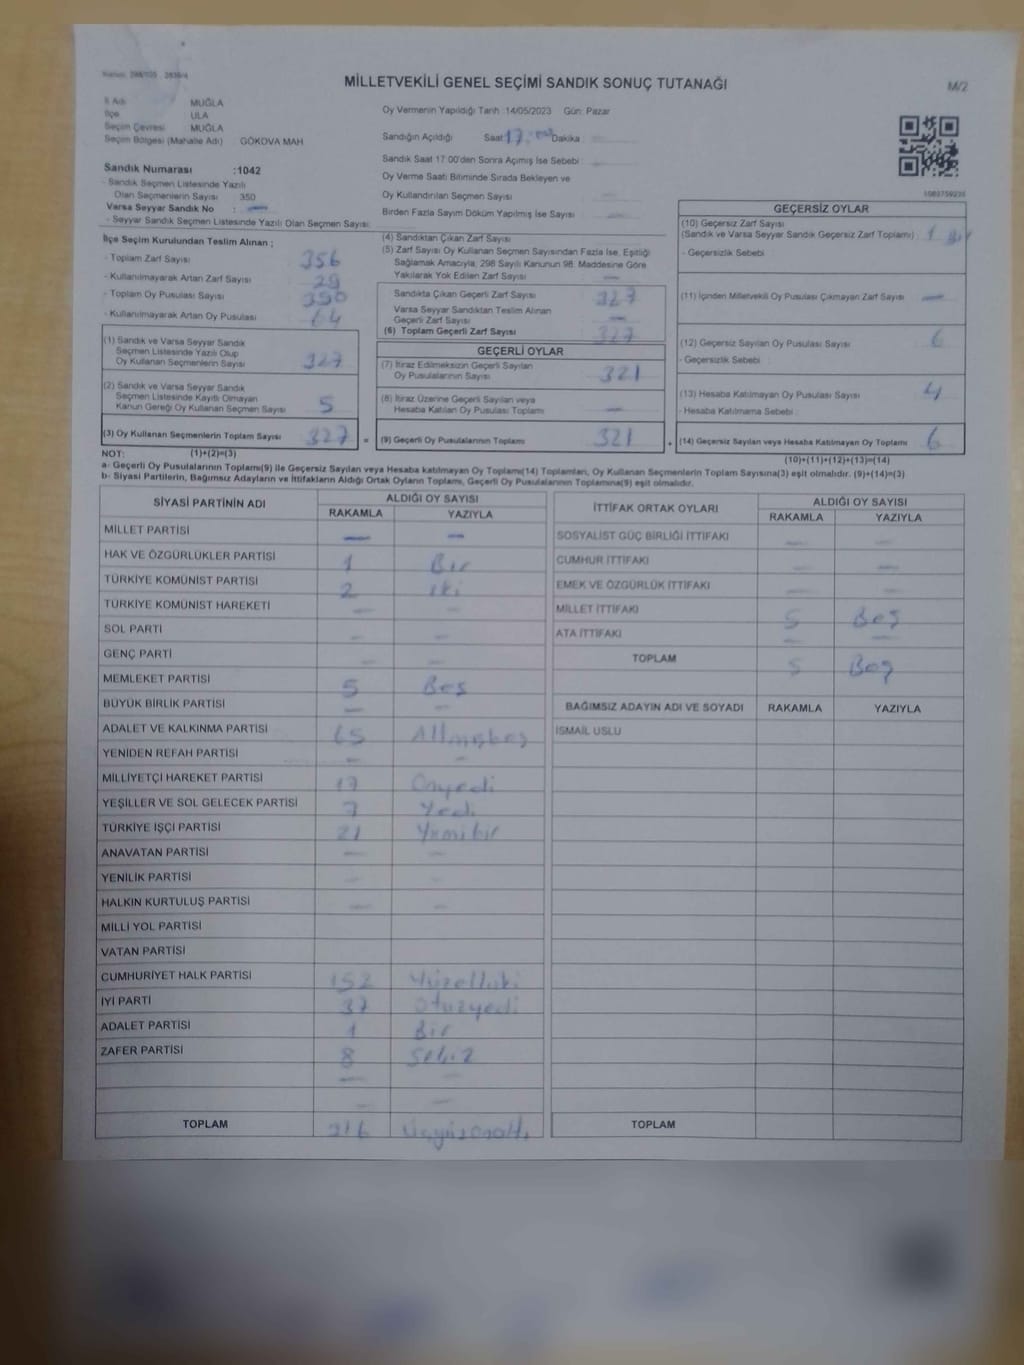 MİLLETVEKİLİ GENEL SEÇİMİ SANDIK SONUÇ TUTANAĞI
M/2
İl Adı MUĞLA
İlçe ULA
Seçim Çevresi MUĞLA
Seçim Bölgesi (Mahalle Adı) GÖKOVA MAH
Sandık Numarası :1042
- Sandık Seçmen Listesinde Yazılı
Olan Seçmenlerin Sayısı 350
Varsa Seyyar Sandık No : —
- Seyyar Sandık Seçmen Listesinde Yazılı Olan Seçmen Sayısı:
Oy Vermenin Yapıldığı Tarih :14/05/2023 Gün: Pazar
Sandığın Açıldığı Saat 17 Dakika
Sandık Saat 17:00'den Sonra Açımış İse Sebebi :
Oy Verme Saati Bitiminde Sırada Bekleyen ve
Oy Kullandırılan Seçmen Sayısı
Birden Fazla Sayım Döküm Yapılmış İse Sayısı
İlçe Seçim Kurulundan Teslim Alınan ;
- Toplam Zarf Sayısı : 356
- Kullanılmayarak Artan Zarf Sayısı : 29
- Toplam Oy Pusulası Sayısı : 390
- Kullanılmayarak Artan Oy Pusulası : 64
(1) Sandık ve Varsa Seyyar Sandık
Seçmen Listesinde Yazılı Olup
Oy Kullanan Seçmenlerin Sayısı 327
(2) Sandık ve Varsa Seyyar Sandık
Seçmen Listesinde Kayıtlı Olmayan
Kanun Gereği Oy Kullanan Seçmen Sayısı 5
(3) Oy Kullanan Seçmenlerin Toplam Sayısı 327 =
(4) Sandıktan Çıkan Zarf Sayısı
(5) Zarf Sayısı Oy Kullanan Seçmen Sayısından Fazla İse, Eşitliği
Sağlamak Amacıyla, 298 Sayılı Kanunun 98. Maddesine Göre
Yakılarak Yok Edilen Zarf Sayısı —
Sandıkta Çıkan Geçerli Zarf Sayısı 327
Varsa Seyyar Sandıktan Teslim Alınan
Geçerli Zarf Sayısı —
(6) Toplam Geçerli Zarf Sayısı 327
GEÇERLİ OYLAR
(7) İtiraz Edilmeksizin Geçerli Sayılan
Oy Pusulalarının Sayısı 321
(8) İtiraz Üzerine Geçerli Sayılan veya
Hesaba Katılan Oy Pusulası Toplamı —
(9) Geçerli Oy Pusulalarının Toplamı 321 +
GEÇERSİZ OYLAR
(10) Geçersiz Zarf Sayısı
(Sandık ve Varsa Seyyar Sandık Geçersiz Zarf Toplamı) : 1 Bir
- Geçersizlik Sebebi
(11) İçinden Milletvekili Oy Pusulası Çıkmayan Zarf Sayısı —
(12) Geçersiz Sayılan Oy Pusulası Sayısı 6
- Geçersizlik Sebebi :
(13) Hesaba Katılmayan Oy Pusulası Sayısı 4
- Hesaba Katılmama Sebebi :
(14) Geçersiz Sayılan veya Hesaba Katılmayan Oy Toplamı 6
NOT: (1)+(2)=(3) (10)+(11)+(12)+(13)=(14)
a- Geçerli Oy Pusulalarının Toplamı(9) ile Geçersiz Sayılan veya Hesaba katılmayan Oy Toplamı(14) Toplamları, Oy Kullanan Seçmenlerin Toplam Sayısına(3) eşit olmalıdır. (9)+(14)=(3)
b- Siyasi Partilerin, Bağımsız Adayların ve İttifakların Aldığı Ortak Oyların Toplamı, Geçerli Oy Pusulalarının Toplamına(9) eşit olmalıdır.
SİYASİ PARTİNİN ADI ALDIĞI OY SAYISI
RAKAMLA YAZIYLA
MİLLET PARTİSİ — —
HAK VE ÖZGÜRLÜKLER PARTİSİ 1 Bir
TÜRKİYE KOMÜNİST PARTİSİ 2 iki
TÜRKİYE KOMÜNİST HAREKETİ — —
SOL PARTİ — —
GENÇ PARTİ — —
MEMLEKET PARTİSİ 5 Beş
BÜYÜK BİRLİK PARTİSİ — —
ADALET VE KALKINMA PARTİSİ 65 Altmışbeş
YENİDEN REFAH PARTİSİ — —
MİLLİYETÇİ HAREKET PARTİSİ 17 Onyedi
YEŞİLLER VE SOL GELECEK PARTİSİ 7 Yedi
TÜRKİYE İŞÇİ PARTİSİ 21 Yirmibir
ANAVATAN PARTİSİ — —
YENİLİK PARTİSİ — —
HALKIN KURTULUŞ PARTİSİ — —
MİLLİ YOL PARTİSİ
VATAN PARTİSİ
CUMHURİYET HALK PARTİSİ 152 Yüzelliiki
İYİ PARTİ 37 Otuzyedi
ADALET PARTİSİ 1 Bir
ZAFER PARTİSİ 8 Sekiz
— —
— —
TOPLAM 316 Üçyüzonaltı
İTTİFAK ORTAK OYLARI ALDIĞI OY SAYISI
RAKAMLA YAZIYLA
SOSYALİST GÜÇ BİRLİĞİ İTTİFAKI — —
CUMHUR İTTİFAKI — —
EMEK VE ÖZGÜRLÜK İTTİFAKI — —
MİLLET İTTİFAKI 5 Beş
ATA İTTİFAKI — —
TOPLAM 5 Beş
BAĞIMSIZ ADAYIN ADI VE SOYADI RAKAMLA YAZIYLA
İSMAİL USLU
TOPLAM